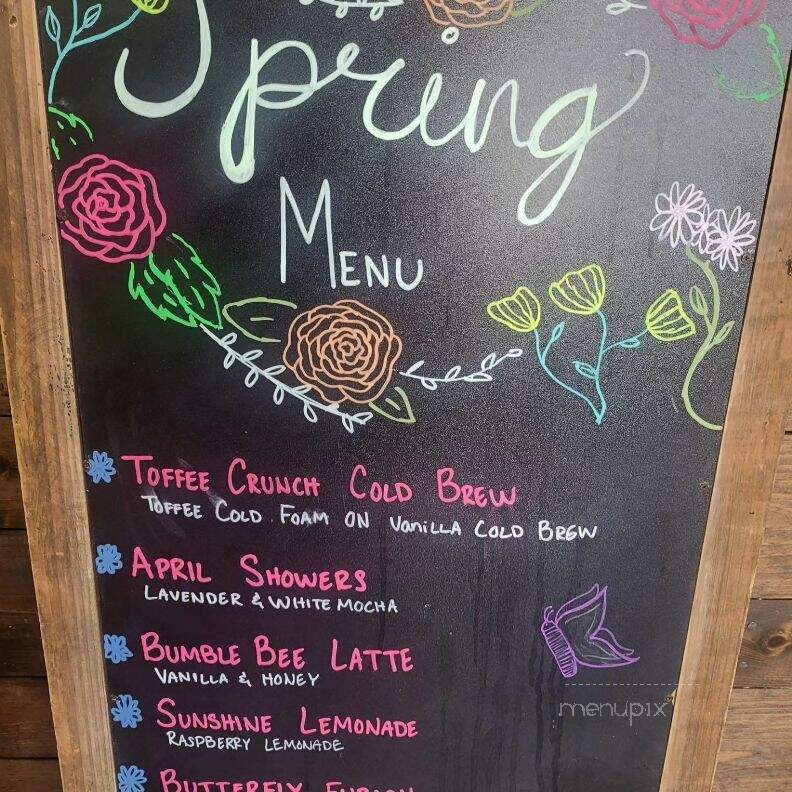 Spring
MENU
TOFFEE CRUNCH COLD BREW
TOFFEE COLD FOAM ON VaniLLA COLD BREW
APRIL SHOWERS
LAVENDER & WHITE MOCHA
BUMBLE BEE LATTE
VANILLA & HONEY
SUNSHINE LEMONADE
RASPBERRY LEMONADE
BUTTERFLY
menupix